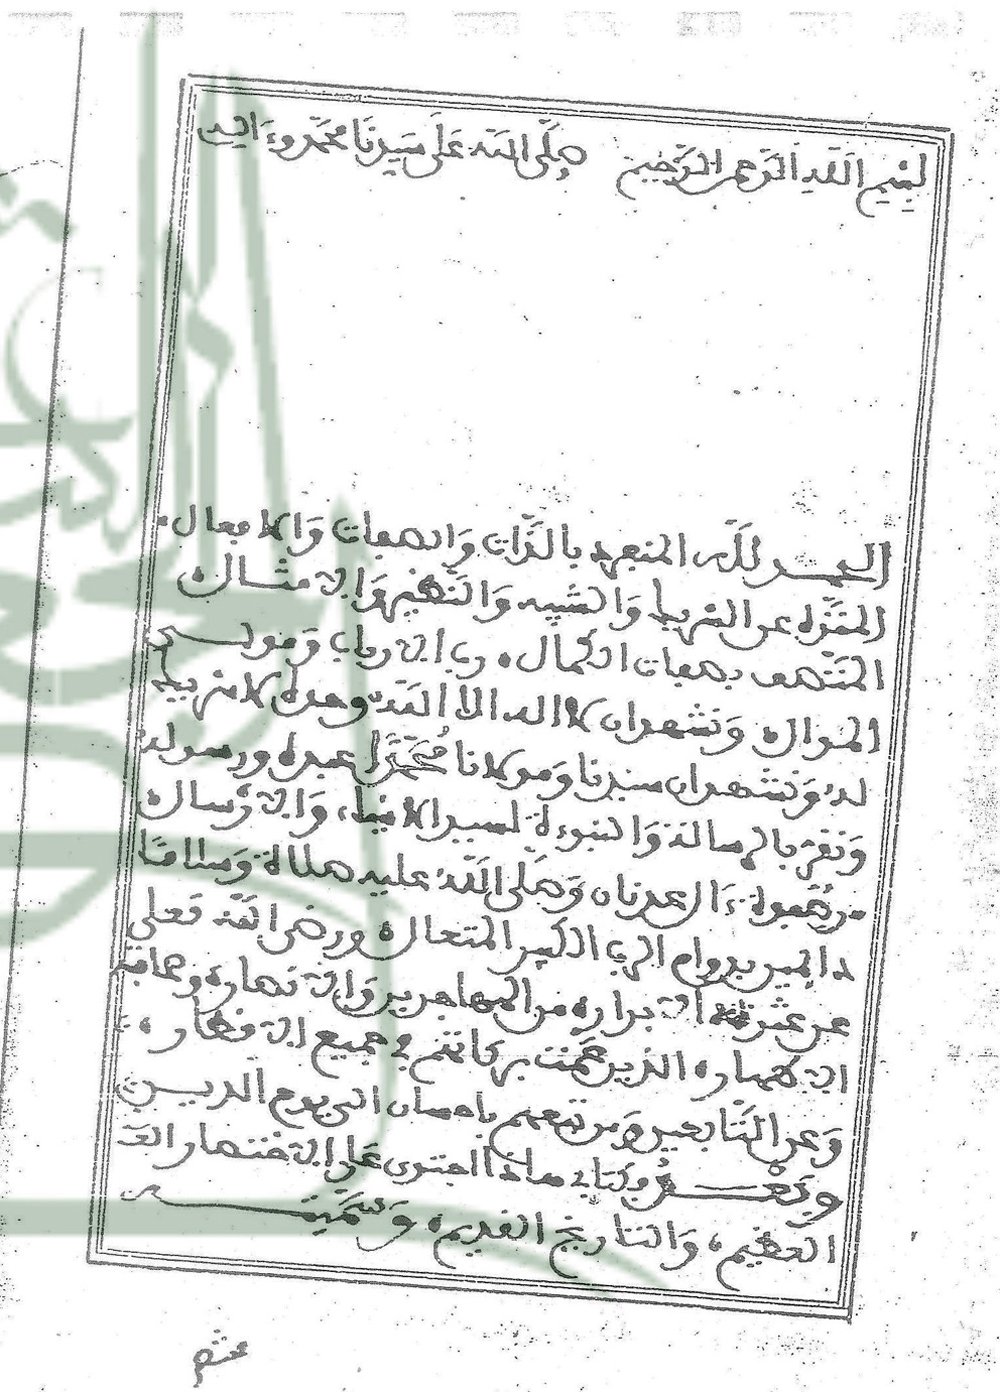 بِسْمِ اللهِ الرَّحْمٰنِ الرَّحِيمِ صَلَّى اللهُ عَلَى سَيِّدِنَا مُحَمَّدٍ وَءَالِهِ
الحمد لله المنفرد بالذَّات وَالصفات وَالافعال.
المنَزَّه عن الشريك وَالشبيه وَالنَّظير وَالامثال
المتَّصف بصفات الكمال، رب الارباب وَمولى
الموال وَنشهد ان لا اله الا اللهُ وحده لا شريك
له، وَنَشهد ان سيدنا وَمولانا مُحَمَّدًا عبده ورسوله
وَنقر بالرسالة وَالنبوءة لسيد الانبياء، وَالارسال
من صَفوة ءَال عدنان وَصَلى اللهُ عليه صلاة وَسلامًا
دائمين بدوام الرب الكبير المتعال ورضي الله تعلى
عن عثرته الابراره من المهاجرين وَالانصاره وصحابته
الاطهاره الذين عمت بركاتهم في جميع الاقطار،
وَعن التَّابعين وَمن تبعهم باحسان الى يوم الديـن
وبَعْـد وكتابي هاذا احتوى على الاختصار
العظيم، وَالتاريخ القديم، وَسَمَّيتـه